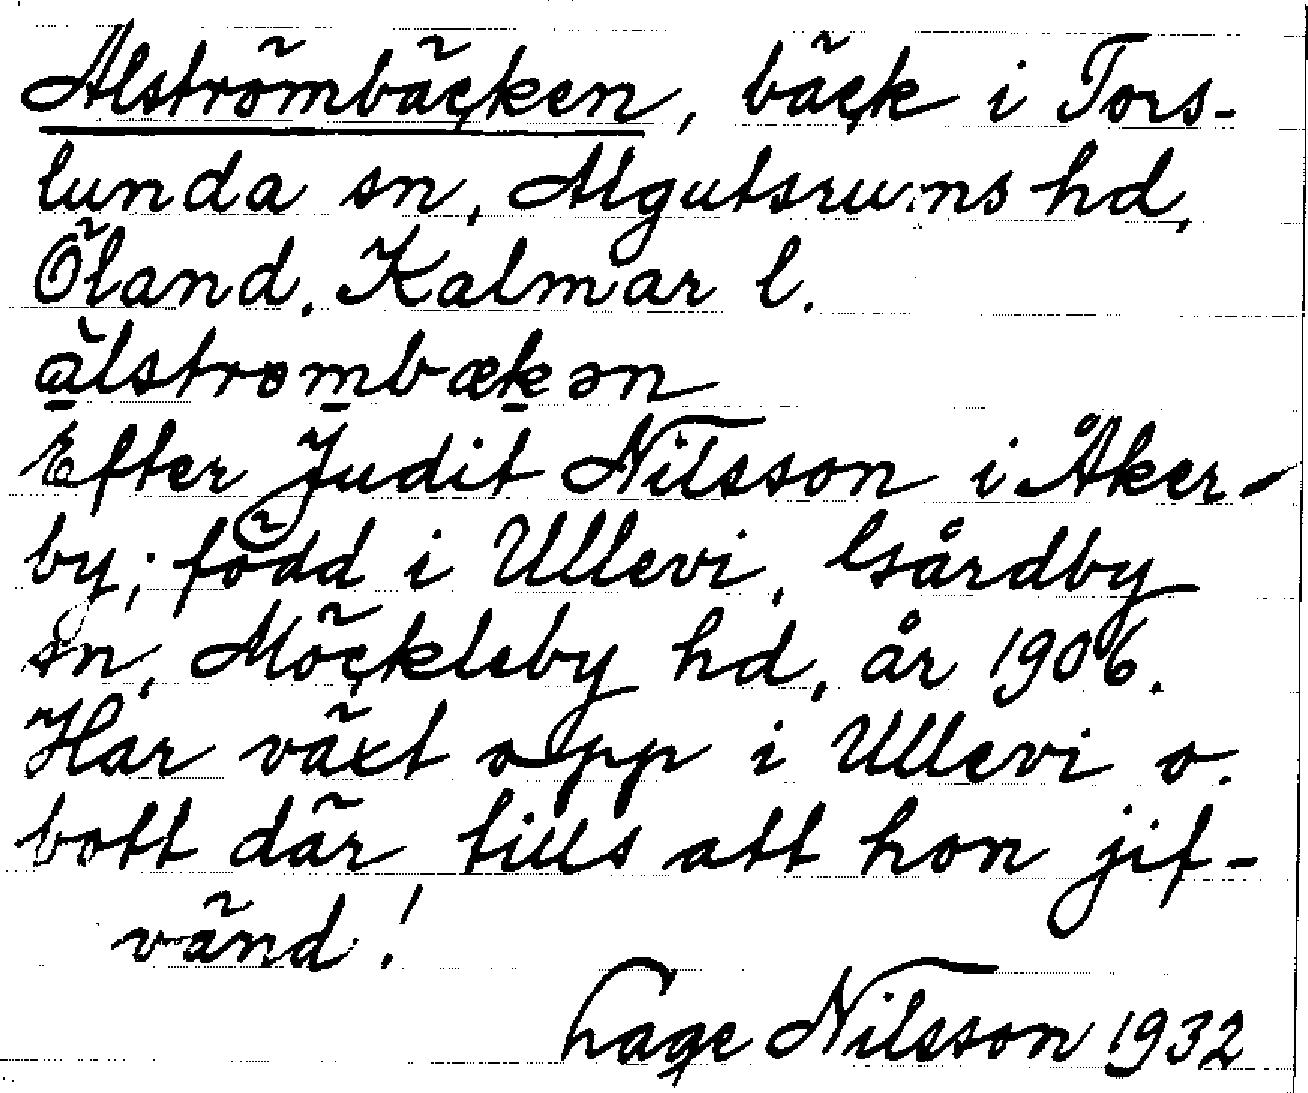 Alströmbäcken, bäck i Tors-
lunda sn, Algutsrums hd,
Öland. Kalmar l.
àlstrombækən
Efter Judit Nilsson i Åker-
by; född i Ullevi, Gårdby
sn, Möckleby hd, år 1906.
Har växt opp i Ullevi o.
bott där tills att hon jif-
vänd!
Lage Nilsson 1932